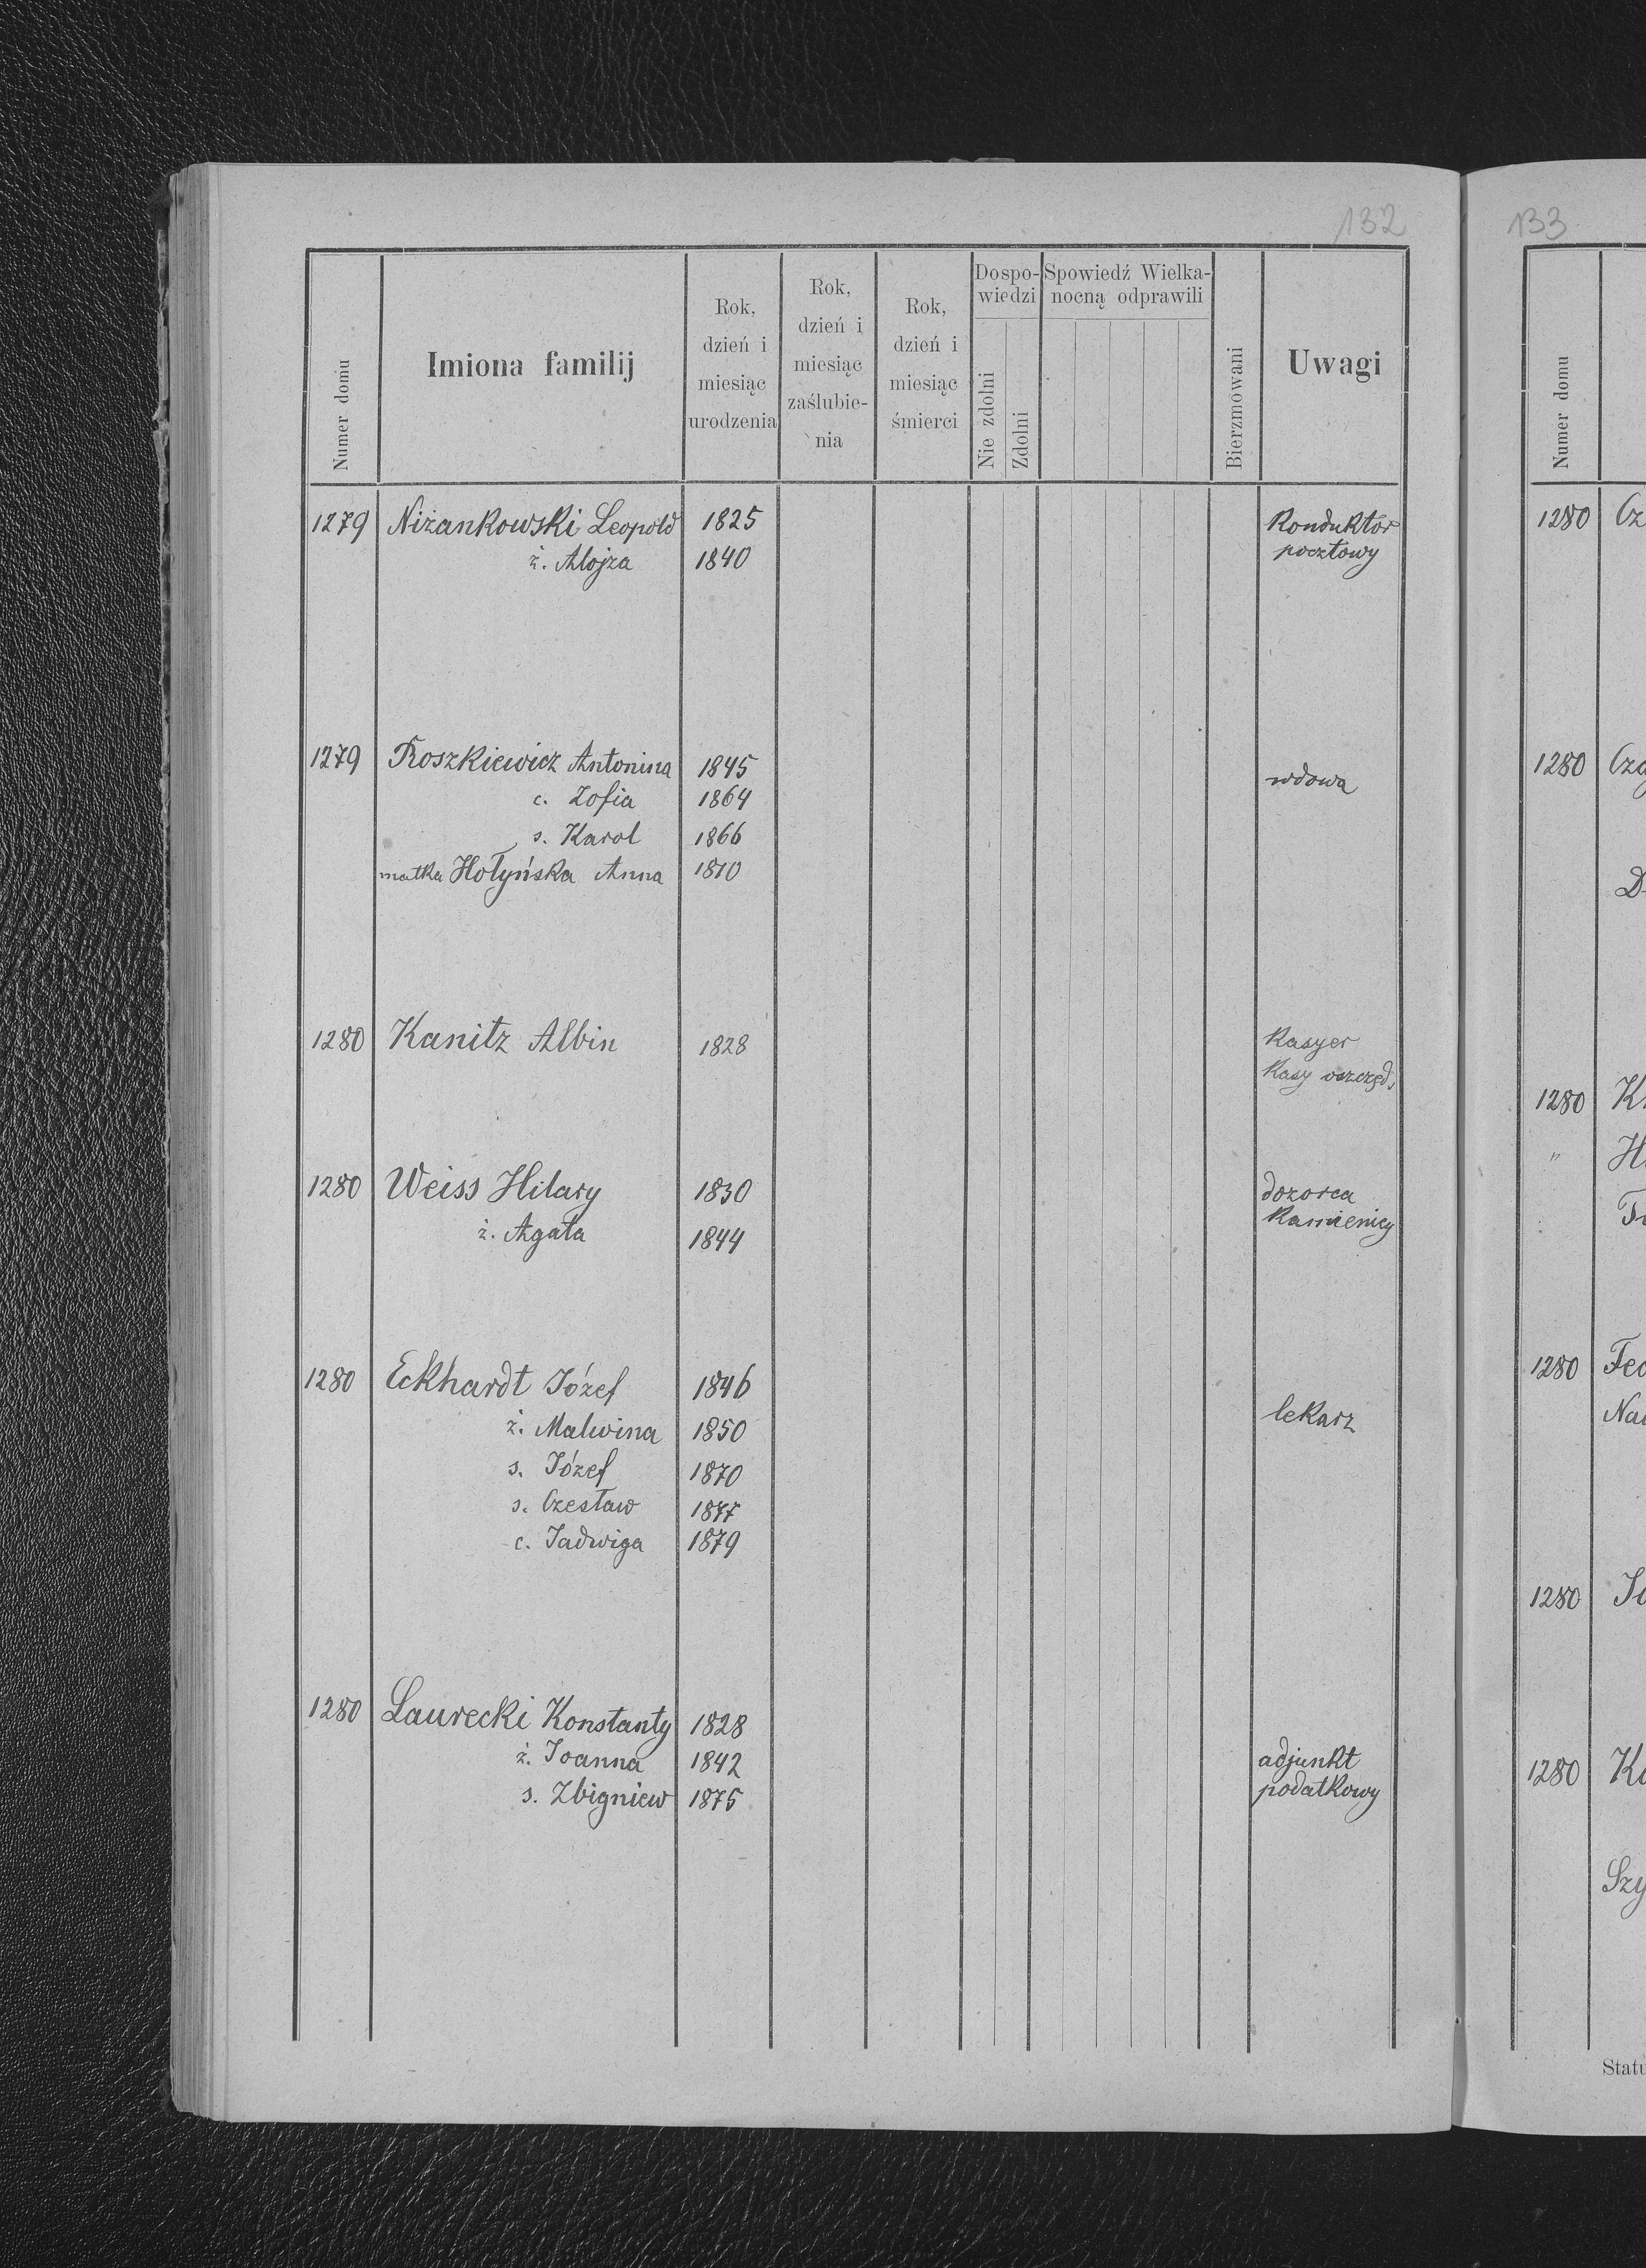 132
Numer domu
Imiona familij
Rok, dzień i miesiąc urodzenia
Rok, dzień i miesiąc zaślubie-nia
Rok, dzień i miesiąc śmierci
Dospo-wiedzi
Nie zdolni
Zdolni
Spowiedź Wielka-nocną odprawili
Bierzmowani
Uwagi
1279 Niżankowski Leopold 1825 Konduktor
ż. Alojza 1840 pocztowy
1279 Roszkiewicz Antonina 1845 wdowa
c. Zofia 1864
s. Karol 1866
matka Hołyńska Anna 1810
1280 Kanitz Albin 1828 Kasyer
Kasy oszczęd.
1280 Weiss Hilary 1830 dozorca
ż. Agata 1844 Kamienicy
1280 Eckhardt Józef 1846
ż. Malwina 1850 lekarz
s. Józef 1870
s. Czesław 1877
c. Jadwiga 1879
1280 Laurecki Konstanty 1828
ż. Joanna 1842 adjunkt
s. Zbigniew 1875 podatkowy
133
Numer domu
1280 Cz
1280 Cza
D
1280 K
" H
1280 Fed
Na
1280 Jo
1280 Ko
Szy
Statu